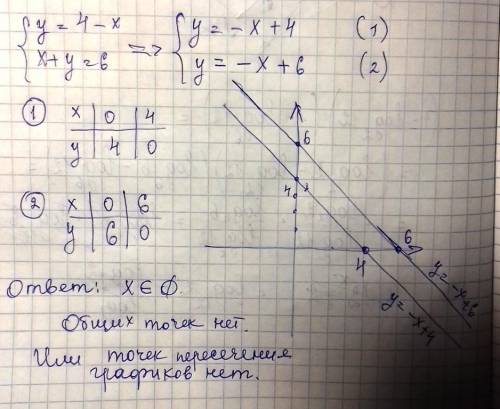 y = 4 - x => y = -x + 4 (1)
x + y = 6 y = -x + 6 (2)
① x 0 4
y 4 0
② x 0 6
y 6 0
6
4
4
6
y = -x + 6
y = -x + 4
Ответ: X ∈ ∅
Общих точек нет.
Или точек пересечения
графиков нет.